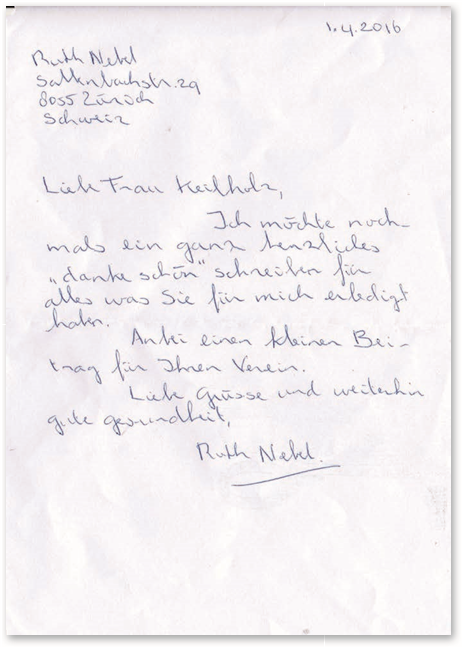 1.4.2016
Ruth Nebel
Saltenbachstr. 29
8055 Zürich
Schweiz
Liebe Frau Keilholz,
Ich möchte noch-
mals ein ganz herzliches
„danke schön" schreiben für
alles was Sie für mich erledigt
haben.
Anbei einen kleinen Bei-
trag für Ihren Verein.
Liebe Grüsse und weiterhin
gute gesundheit,
Ruth Nebel.